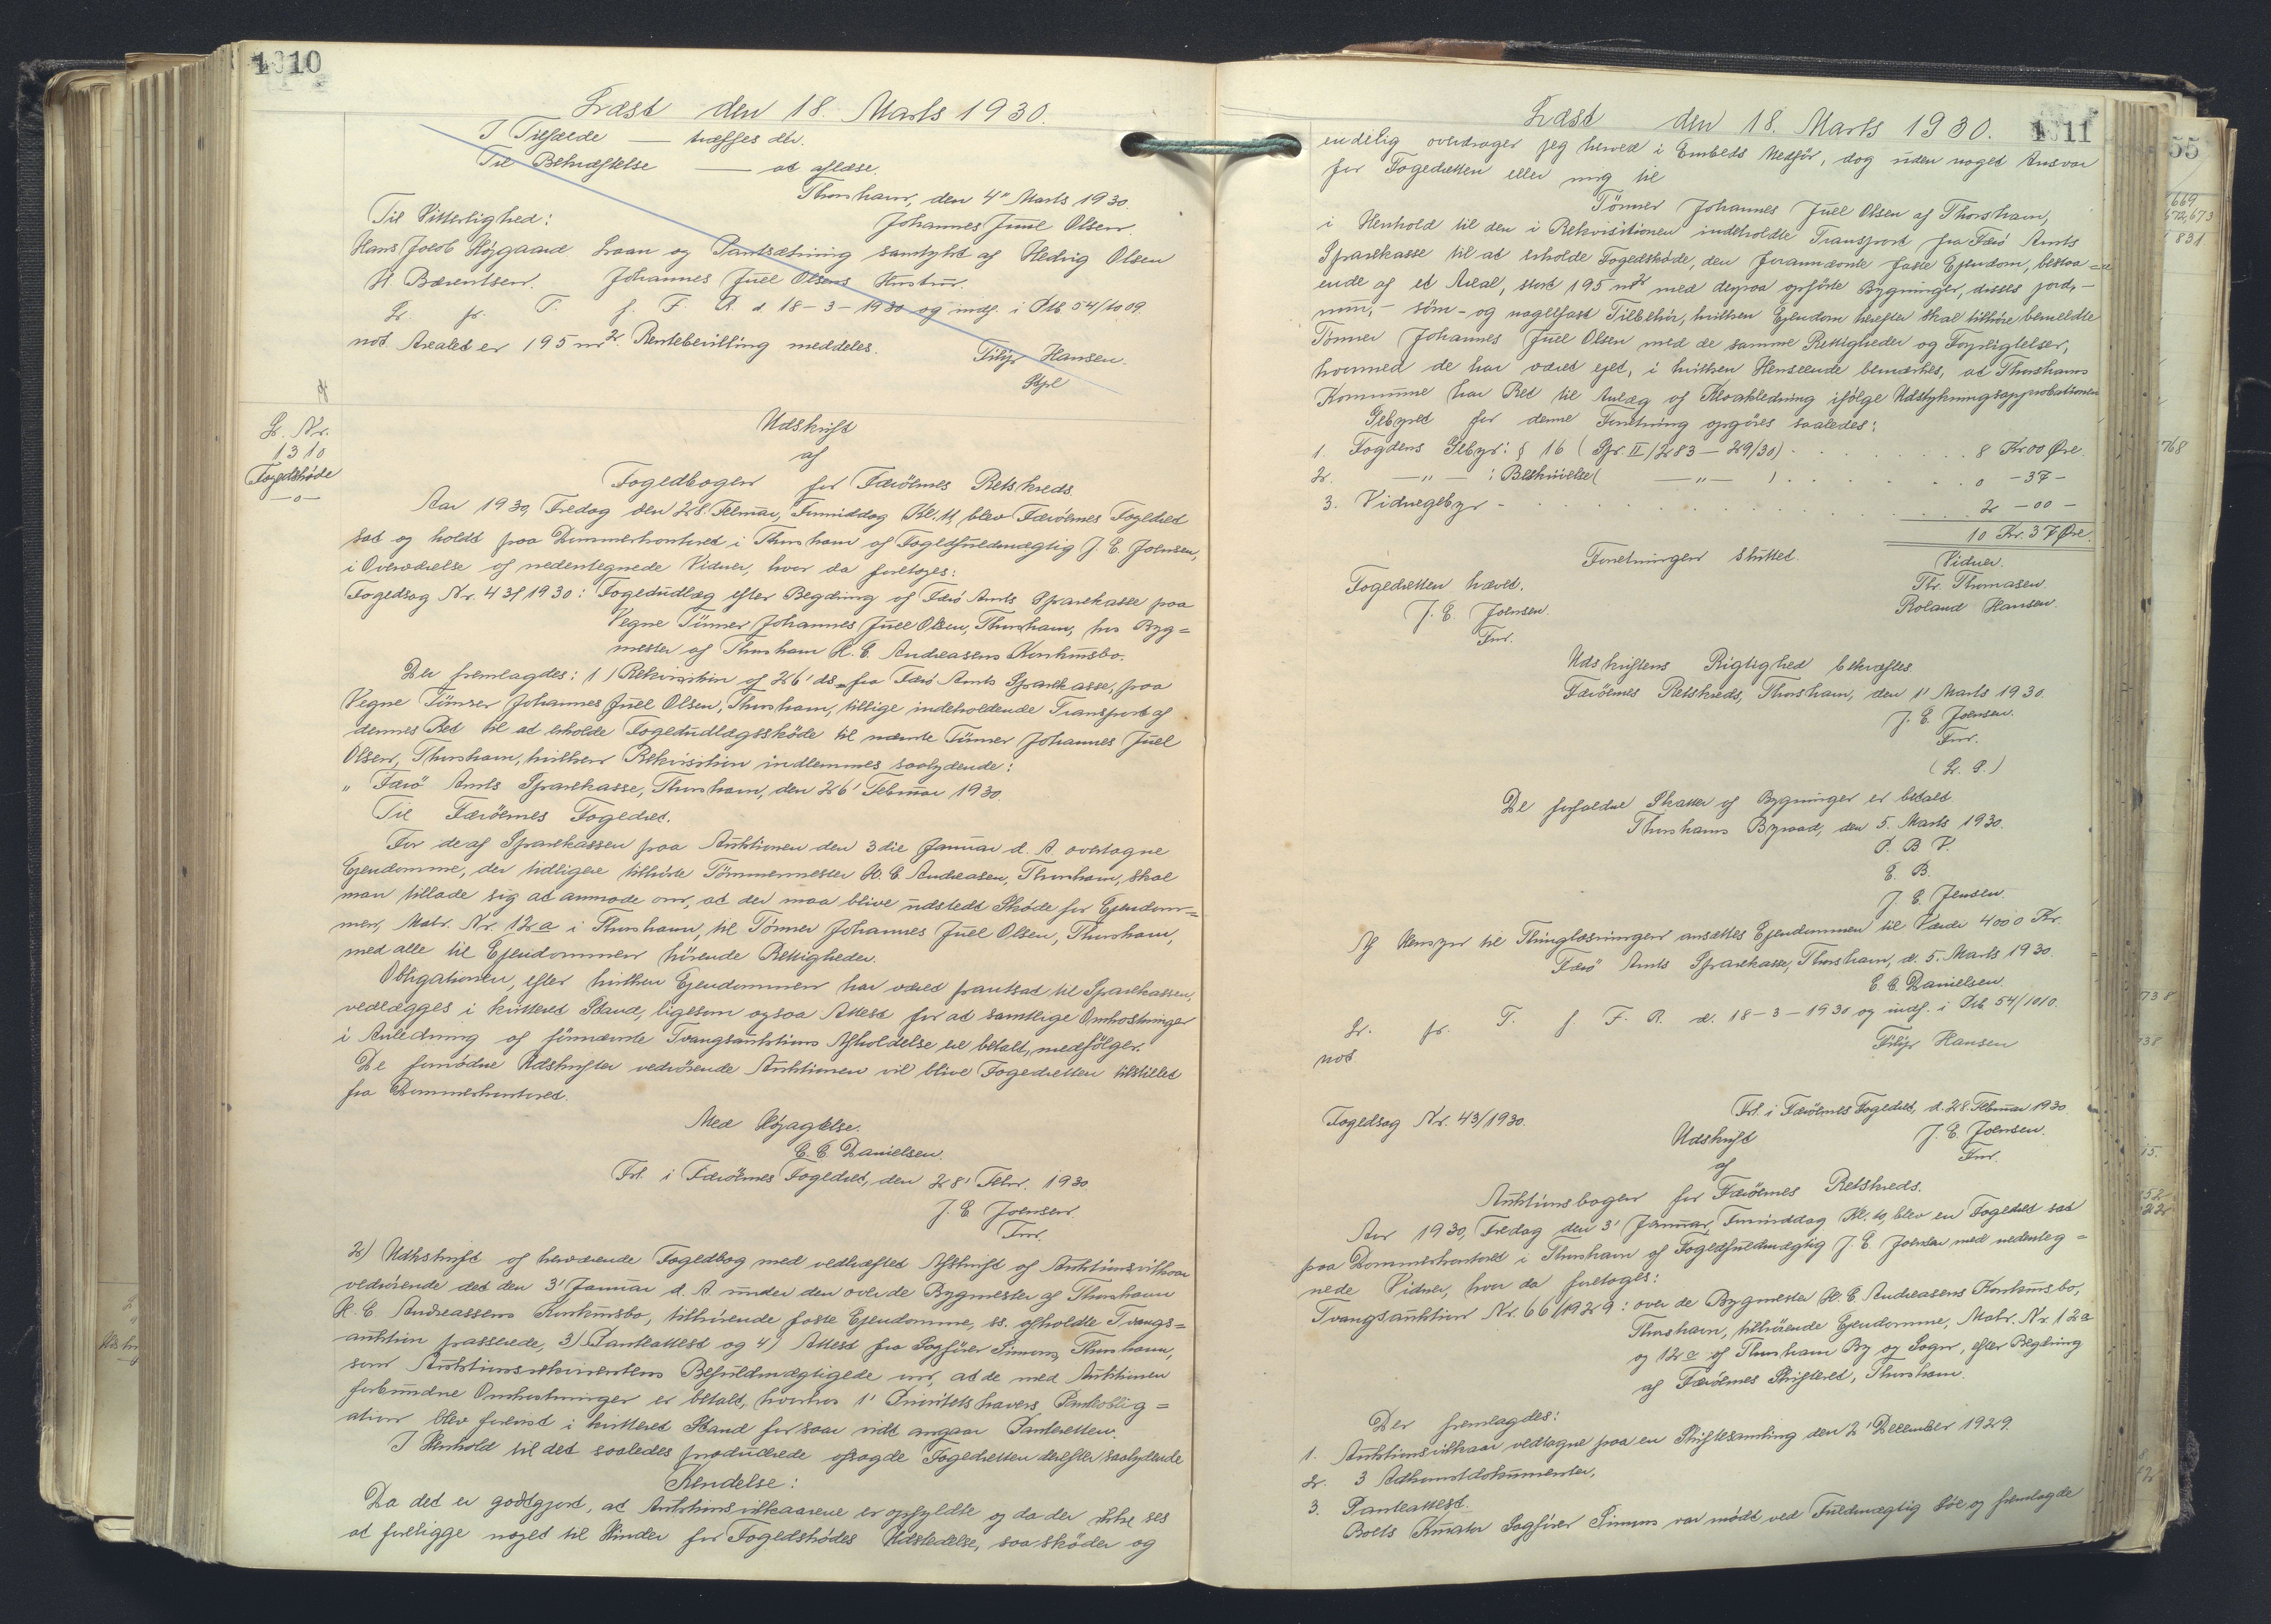 1010
Læst den 18. Marts 1930.
I Tilfælde — træffes der.
Til Bekræftelse — at aflæse.
Thorshavn, den 4" Marts 1930.
Til Vitterlighed: Johannes Juul Olsen.
Hans Jacob Højgaard Laan og Pantsætning samtykt af Hedvig Olsen
H. Bærentsen. Johannes Juel Olsens Hustru.
L. fr. T. f. F. R. d. 18-3-1930 og indf. i Ptb 54/1009.
not Arealet er 195 m². Rentebevilling meddeles.
Filip Hansen.
L. Nr.
1310
Fogedskøde
—o—
Udskrift
af
Fogedbogen for Færöernes Retskreds.
Aar 1930, Fredag den 28. Februar, Formiddag Kl. 11, blev Færöernes Fogedret
sat og holdt paa Dommerkontoret i Thorshavn af Fogedfuldmægtig J. E. Joensen,
i Overværelse af nedentegnede Vidner, hvor da foretoges:
Fogedsag Nr. 43/1930: Fogedudlæg efter Begæring af Færö Amts Sparekasse paa
Vegne Tömrer Johannes Juel Olsen, Thorshavn, hos Byg=
mester af Thorshavn H. C. Andreasens Konkursbo.
Der fremlagdes: 1) Rekvisition af 26' ds. fra Færö Amts Sparekasse, paa
Vegne Tömrer Johannes Juel Olsen, Thorshavn, tillige indeholdende Transport af
dennes Ret til at erholde Fogedudlægsskøde til nævnte Tömrer Johannes Juel
Olsen, Thorshavn, hvilken Rekvisition indlemmes saalydende:
" Færö Amts Sparekasse, Thorshavn, den 26' Februar 1930.
Til Færöernes Fogedret.
For de af Sparekassen paa Auktionen den 3die Januar d. A. overtagne
Ejendomme, der tidligere tilhörte Tömmermester H. C. Andreasen, Thorshavn, skal
man tillade sig at anmode om, at der maa blive udstedt Skøde for Ejendom=
men, Matr. Nr. 12a i Thorshavn, til Tömrer Johannes Juel Olsen, Thorshavn,
med alle til Ejendommen hörende Rettigheder.
Obligationen, efter hvilken Ejendommen har været pantsat til Sparekassen,
vedlægges i kvitteret Stand, ligesom ogsaa Attest for at samtlige Omkostninger
i Anledning af fornævnte Tvangsauktions Afholdelse er betalt, medfölger.
De fornödne Udskrifter vedrörende Auktionen vil blive Fogedretten tilstillet
fra Dommerkontoret.
Med Højagtelse.
C. C. Danielsen.
Frl. i Færöernes Fogedret, den 28' Febr. 1930.
J. E. Joensen.
Fm.
2) Udskrift af herværende Fogedbog med vedhæftet Afskrift af Auktionsvilkaar
vedrörende det den 3' Januar d. A. under den over de Bygmester af Thorshavn
H. C. Andreassens Konkursbo, tilhörende faste Ejendomme, ss. afholdte Tvangs=
auktion passerede, 3) Panteattest og 4) Attest fra Sagförer Simons, Thorshavn,
som Auktionsrekvirentens Befuldmægtigede om, at de med Auktionen
forbundne Omkostninger er betalt, hvorhos 1' Prioritetshavers Panteoblig=
ation blev forevist i kvitteret Stand forsaavidt angaar Panteretten.
I Henhold til det saaledes producerede afsagde Fogedretten derefter saalydende
Kendelse:
Da det er godtgjort, at Auktionsvilkaarene er opfyldte og da der ikke ses
at foreligge noget til Hinder for Fogedskødes Udstedelse, saa skøder og
1011
Læst den 18. Marts 1930.
endelig overdrager jeg herved i Embeds Medför, dog uden noget Ansvar
for Fogedretten eller mig til
Tömrer Johannes Juel Olsen af Thorshavn,
i Henhold til den i Rekvisitionen indeholdte Transport fra Færö Amts
Sparekasse til at erholde Fogedskøde, den forannævnte faste Ejendom, bestaa=
ende af et Areal, stort 195 m² med derpaa opförte Bygninger, disses jord,-
mur,- söm- og nagelfast Tilbehör, hvilken Ejendom herefter skal tilhöre bemeldte
Tömrer Johannes Juel Olsen med de samme Rettigheder og Forpligtelser,
hvormed de har været ejet, i hvilken Henseende bemærkes, at Thorshavns
Kommune har Ret til Anlæg af Kloakledning ifölge Udstykningsapprobationen
Gebyret for denne Forretning opgöres saaledes:
1. Fogdens Gebyr: § 16 (Spr. II/283 — 29/30) . . . 8 Kr 00 Øre.
2. —"— : Beskrivelse ( —"— ) . . . 0 - 37 -
3. Vidnegebyr - . . . 2 - 00 -
10 Kr. 37 Øre.
Forretningen sluttet.
Fogedretten hævet. Vidner.
J. E. Joensen. Thr. Thomasen.
Fm. Roland Hansen.
Udskriftens Rigtighed bekræftes
Færöernes Retskreds, Thorshavn, den 1' Marts 1930.
J. E. Joensen.
Fm.
(L. S.)
De forfaldne Skatter af Bygninger er betalt
Thorshavns Byraad, den 5. Marts 1930.
P. B. V.
E. B.
J. E. Jensen.
Af Hensyn til Thinglæsningen ansættes Ejendommen til Værdi 4000 Kr.
Færö Amts Sparekasse, Thorshavn, d. 5. Marts 1930.
C. C. Danielsen.
L. fr. T. f. F. R. d. 18-3-1930 og indf. i Ptb 54/1010.
not Filip Hansen
Frl. i Færöernes Fogedret, d. 28. Februar 1930
Fogedsag Nr. 43/1930. J. E. Joensen.
Udskrift Fm.
af
Auktionsbogen for Færöernes Retskreds.
Aar 1930, Fredag den 3' Januar, Formiddag Kl. 10, blev en Fogedret sat
paa Dommerkontoret i Thorshavn af Fogedfuldmægtig J. E. Joensen med nedenteg=
nede Vidner, hvor da foretoges:
Tvangsauktion Nr. 66/1929: over de Bygmester H. C. Andreasens Konkursbo,
Thorshavn, tilhörende Ejendomme, Matr. Nr. 12a
og 12c af Thorshavn By og Sogn, efter Begæring
af Færöernes Skifteret, Thorshavn.
Der fremlagdes:
1. Auktionsvilkaar vedtagne paa en Skiftesamling den 2' December 1929.
2. 3 Adkomstdokumenter,
3. Panteattest.
Boets Kurator Sagförer Simons var mødt ved Fuldmægtig Löe og fremlagde
55
669
672,673
831
768
738
38
15.
52
22